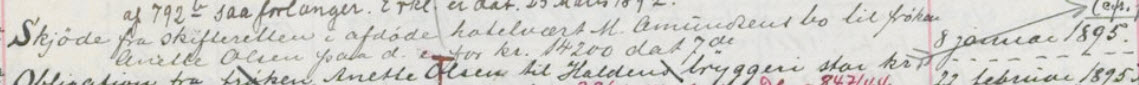 af 792 b saa forlanger. Erkl. er dat. 25 Marts 1892.
Skjöde fra skifteretten i afdöde hotelvært M. Amundsens bo til fröken
Anette Olsen paa d. e. for kr. 14200 dat 7de
8 januar 1895.
Obligation fra fröken Anette Olsen til Haldens bryggeri stor kr.
22 februar 1895.